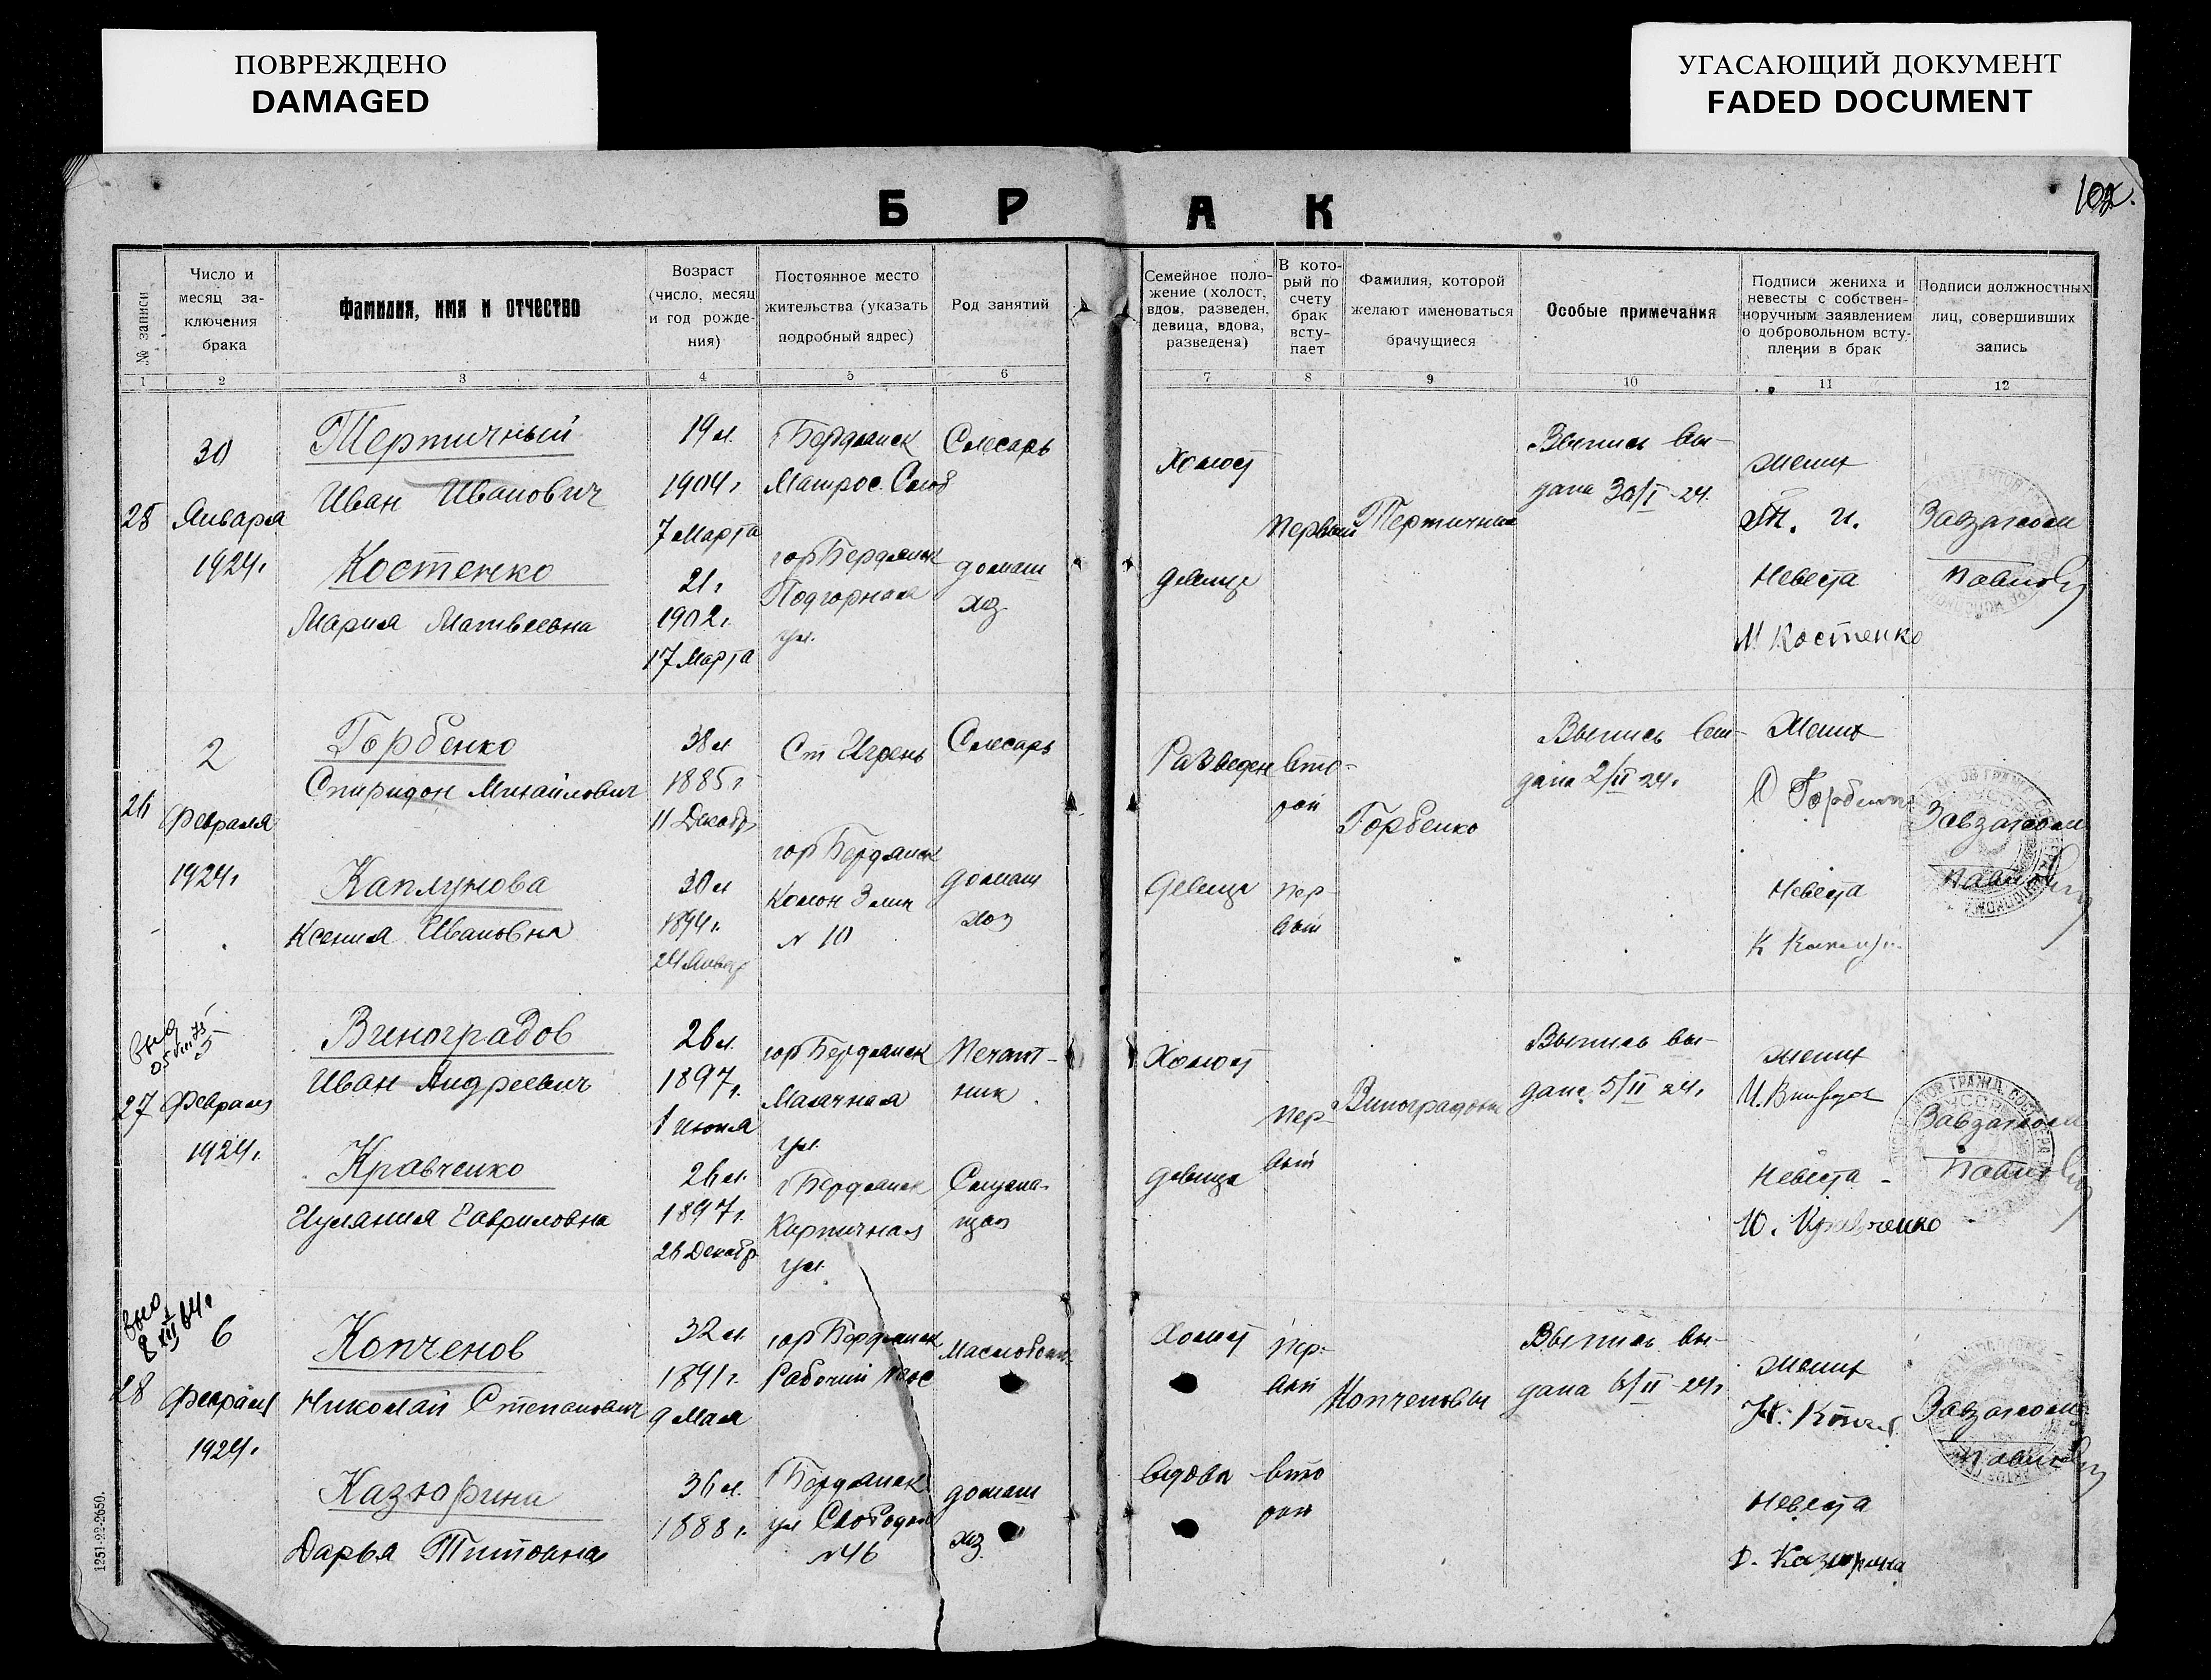 ПОВРЕЖДЕНО
DAMAGED
УГАСАЮЩИЙ ДОКУМЕНТ
FADED DOCUMENT
БРАК
№ записи
Число и
месяц за-
ключения
брака
Фамилия, имя и отчество
Возраст
(число, месяц
и год рожде-
ния)
Постоянное место
жительства (указать
подробный адрес)
Род занятий
Семейное поло-
жение (холост,
вдов, разведен,
девица, вдова,
разведена)
В кото-
рый по
счету
брак
всту-
пает
Фамилия, которой
желают именоваться
брачущиеся
Особые примечания
Подписи жениха и
невесты с собствен-
норучным заявлением
о добровольном всту-
плении в брак
Подписи должностных
лиц, совершивших
запись
1
2
3
4
5
6
7
8
9
10
11
12
25
30
Января
1924г
Терпичный
Иван Иванович
19 л.
1904г
7 Марта
Бердянск
Матрос. Слоб
Слесарь
Холост
Первый
Выпись вы-
дана 30/I-24.
Жених
Т. И.
Завзагсом
Костенко
Мария Матвеевна
21г
1902г.
17 Марта
гор Бердянск
Подгорная
ул.
домаш
хоз.
девица
Невеста
М Костенко
26
2
Февраля
1924г
Горбенко
Спиридон Михайлович
38 л
1885г
11 Декабр
Ст Игрень
Слесарь
Разведен
вто-
рой
Горбенко
Выпись вы-
дана 2/II 24г
Жених
Завзагсом
Каплунова
Ксения Ивановна
30 л
1894г.
24 Январ
гор Бердянск
N 10
домаш
хоз
девица
пер-
вый
Невеста
27
5
Февраля
1924г.
Виноградов
Иван Андреевич
26 л.
1897г.
1 Июня
гор Бердянск
ул.
Печат-
ник
Холост
Пер-
вый
Выпись вы-
дана 5/II 24г
Жених
Завзагсом
Кравченко
Иулания Гавриловна
26 л.
1897г.
26 Декабр
г Бердянск
Кирпичная
ул.
девица
Невеста
Ю. Кравченко
28
6
Февраля
1924г.
Копченов
Николай Степанович
32 л.
1891г.
9 Мая
гор Бердянск
Рабочий
Холост
пер-
вый
Копченовы
Выпись вы-
дана 6/II-24г
Жених
Завзагсом
Казюрина
Дарья Титовна
36 л.
1888г.
Бердянск
ул Свободы
N 46
домаш
хоз.
вдова
вто
рой
Невеста
Д. Казюрина
1251-22-2650.